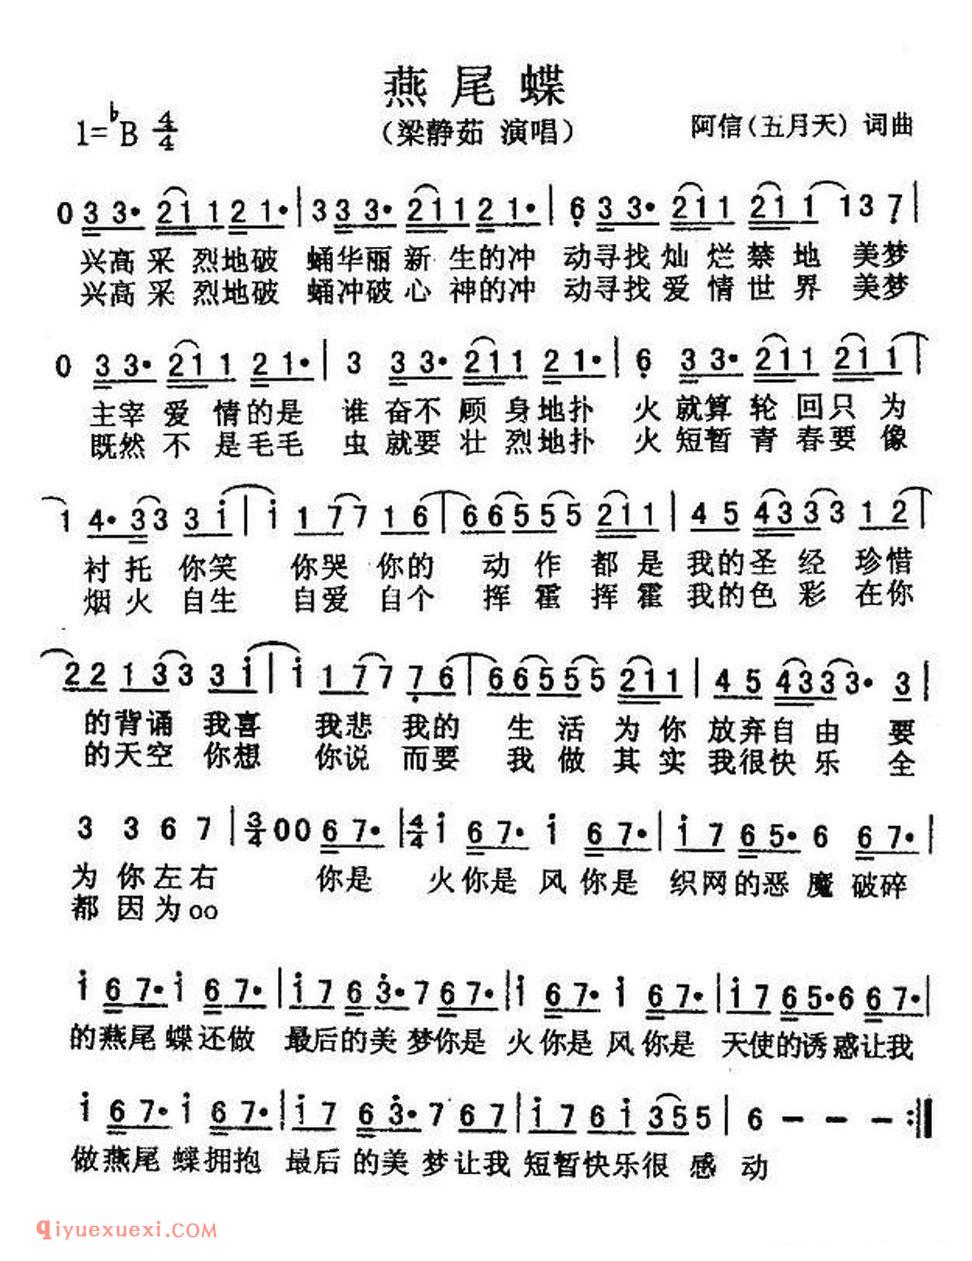 燕尾蝶
1=♭B 4/4 (梁静茹 演唱) 阿信(五月天) 词曲
0 3 3· 2 1 1 2 1· | 3 3 3 3· 2 1 1 2 1· | 6 3 3· 2 1 1 2 1 1 1 3 7 |
兴高 采 烈地破 蛹华丽 新 生的冲 动寻找 灿 烂 禁 地 美梦
兴高 采 烈地破 蛹冲破 心 神的冲 动寻找 爱 情 世 界 美梦
0 3 3· 2 1 1 2 1· | 3 3 3· 2 1 1 2 1· | 6 3 3· 2 1 1 2 1 1 |
主宰 爱 情的是 谁 奋不 顾 身地扑 火 就算 轮 回只 为
既然 不 是毛毛 虫 就要 壮 烈地扑 火 短暂 青 春要 像
1 4· 3 3 3 i | i 1 7 7 1 6 | 6 6 5 5 5 2 1 1 | 4 5 4 3 3 3 1 2 |
衬 托 你笑 你哭 你的 动 作 都 是 我的 圣 经 珍惜
烟 火 自生 自爱 自个 挥 霍 挥 霍 我的 色 彩 在你
2 2 1 3 3 3 i | i 1 7 7 7 6 | 6 6 5 5 5 2 1 1 | 4 5 4 3 3 3· 3 |
的背诵 我喜 我悲 我的 生 活 为 你 放弃自由 要
的天空 你想 你说 而要 我 做 其 实 我很快乐 全
3 3 6 7 | 3/4 0 0 6 7· | 4/4 i 6 7· i 6 7· | i 7 6 5· 6 6 7· |
为 你 左 右 你是 火你是 风你是 织网的恶 魔 破碎
都 因 为oo
i 6 7· i 6 7· | i 7 6 3· 7 6 7· | i 6 7· i 6 7· | i 7 6 5· 6 6 7· |
的燕尾 蝶还做 最后的美 梦你是 火你是 风你是 天使的诱惑让我
i 6 7· i 6 7· | i 7 6 3· 7 6 7 | i 7 6 i 3 5 5 | 6 - - - :‖
做燕尾 蝶拥抱 最后 的美 梦让我 短暂快乐很 感 动
qiyuexuexi.COM